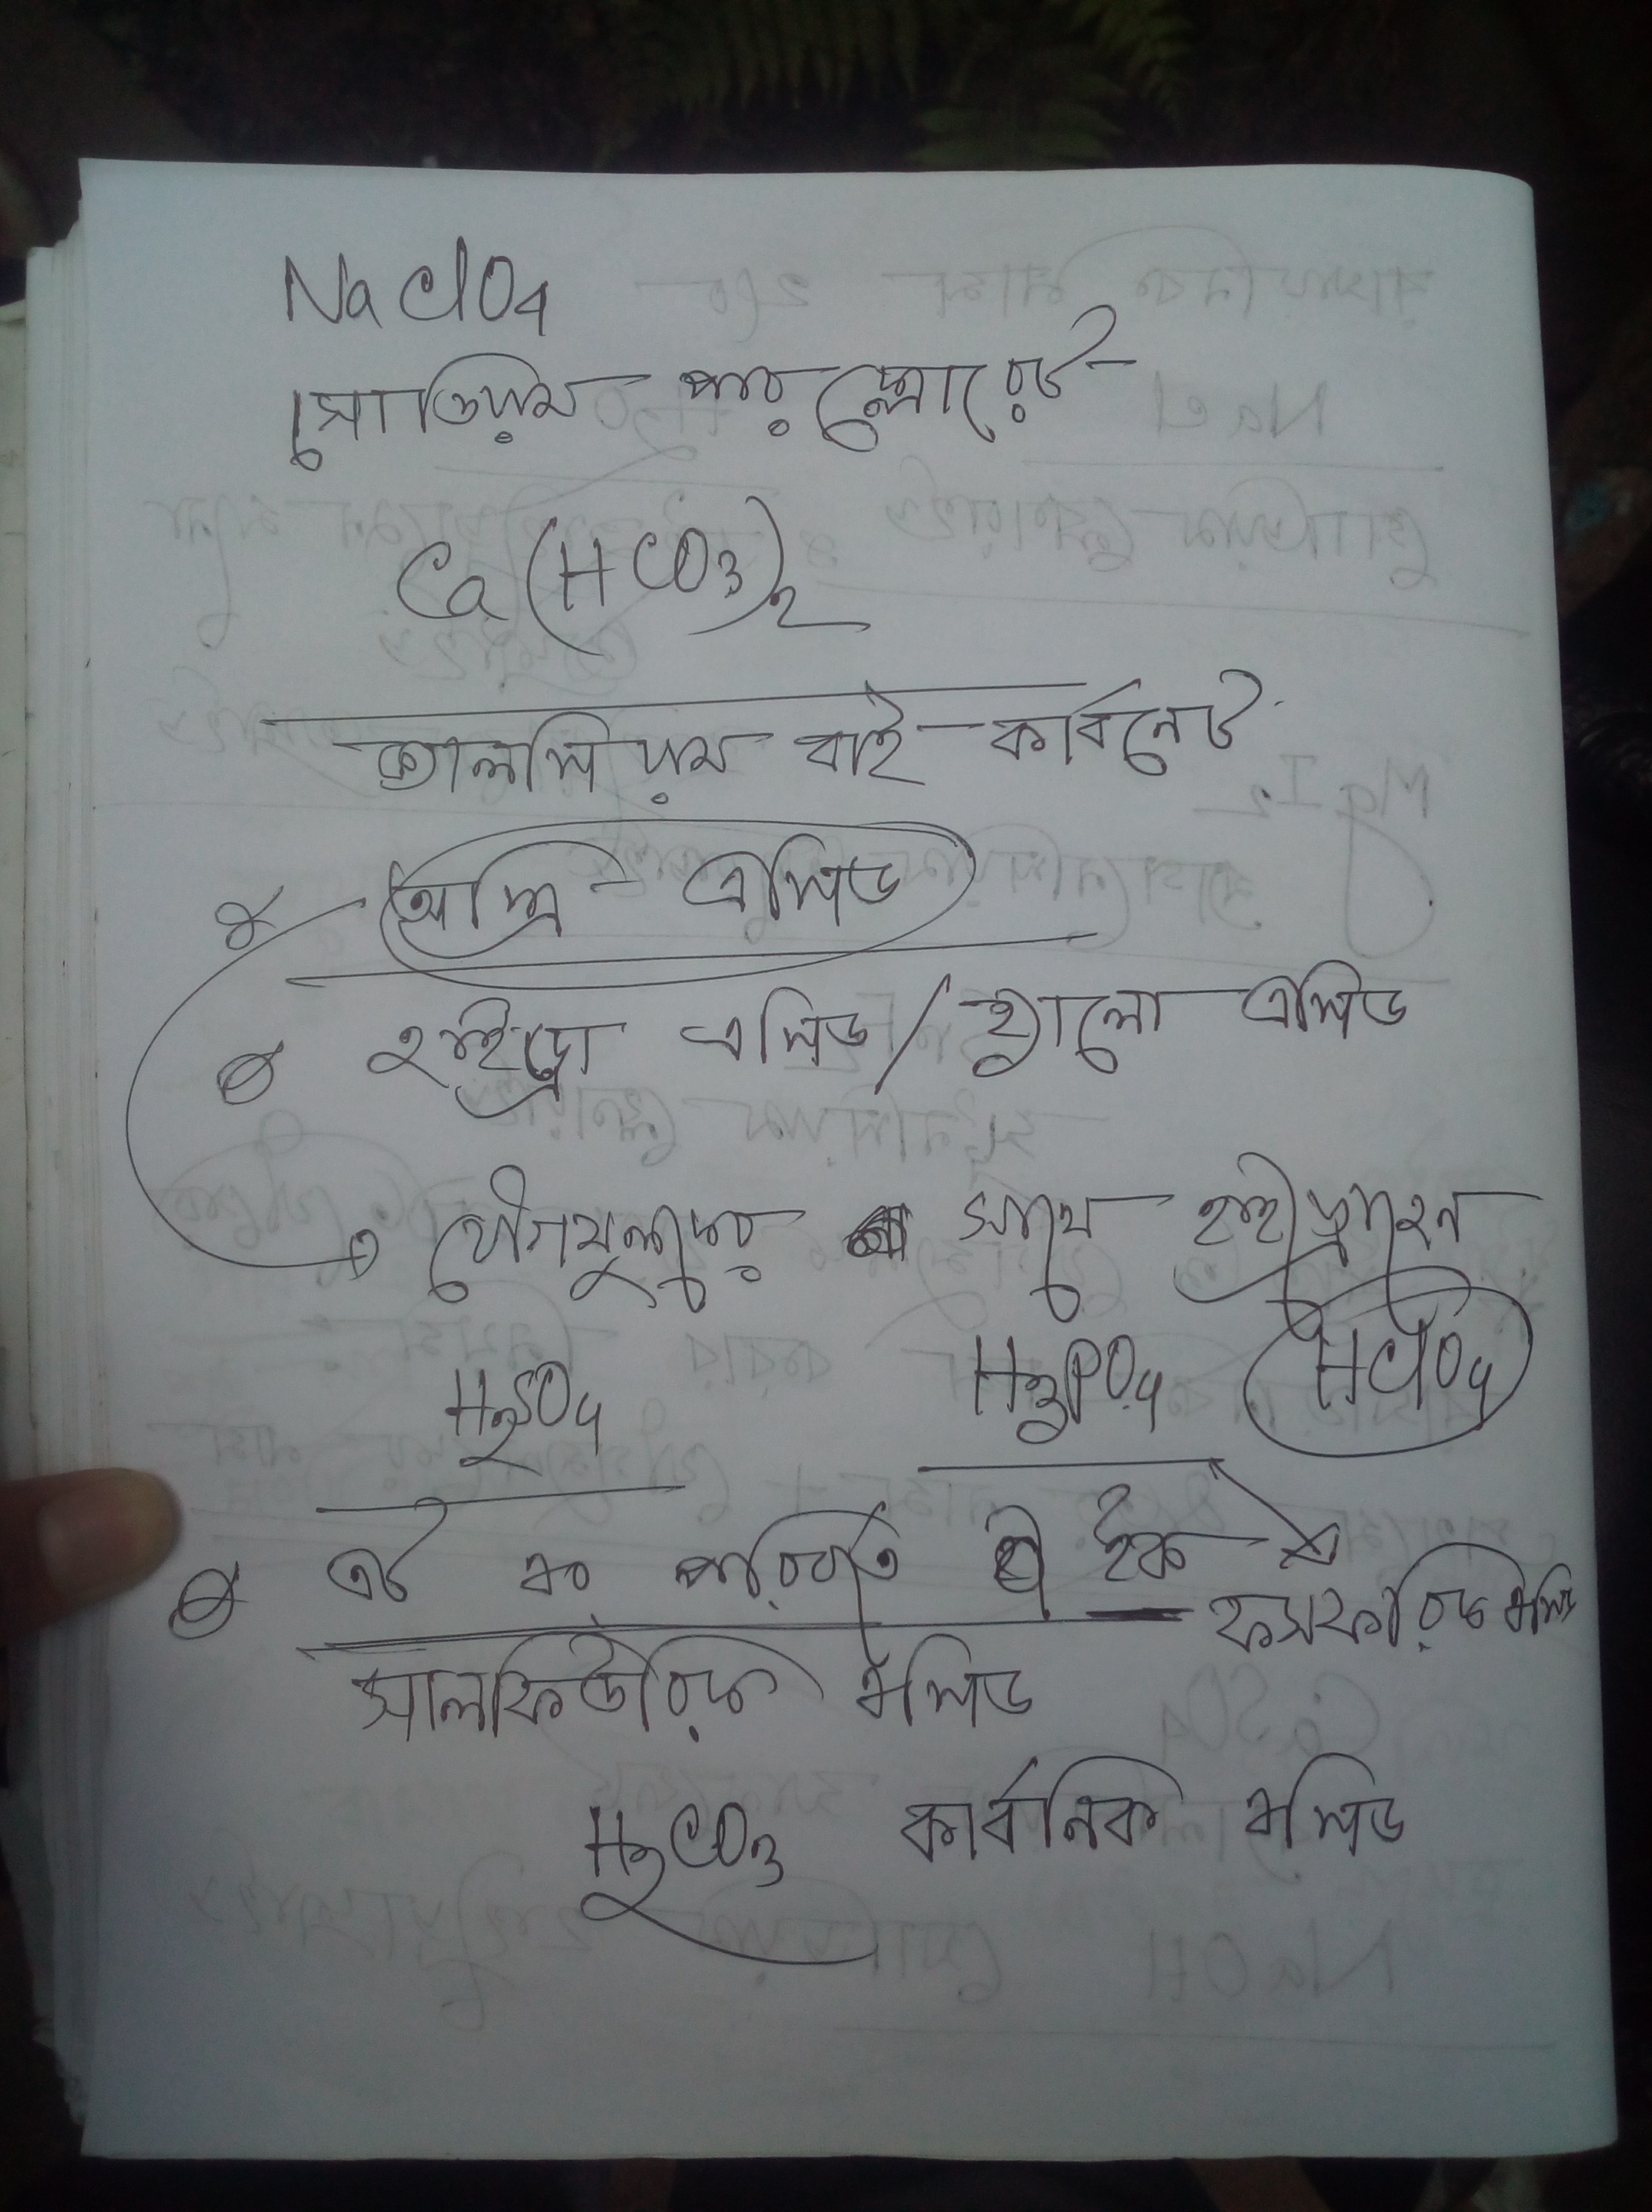 NaClO4
সোডিয়াম পার ক্লোরেট
Ca(HCO3)2
ক্যালসিয়াম বাই কার্বনেট
অক্সি এসিড
হাইড্রো এসিড/হ্যালো এসিড
যৌগমূলকের সাথে হাইড্রোজেন
H2SO4 H3PO4 HClO4
এট এর পরিবর্তে ইক
ফসফরিক এসিড
সালফিউরিক এসিড
H2CO3 কার্বনিক এসিড